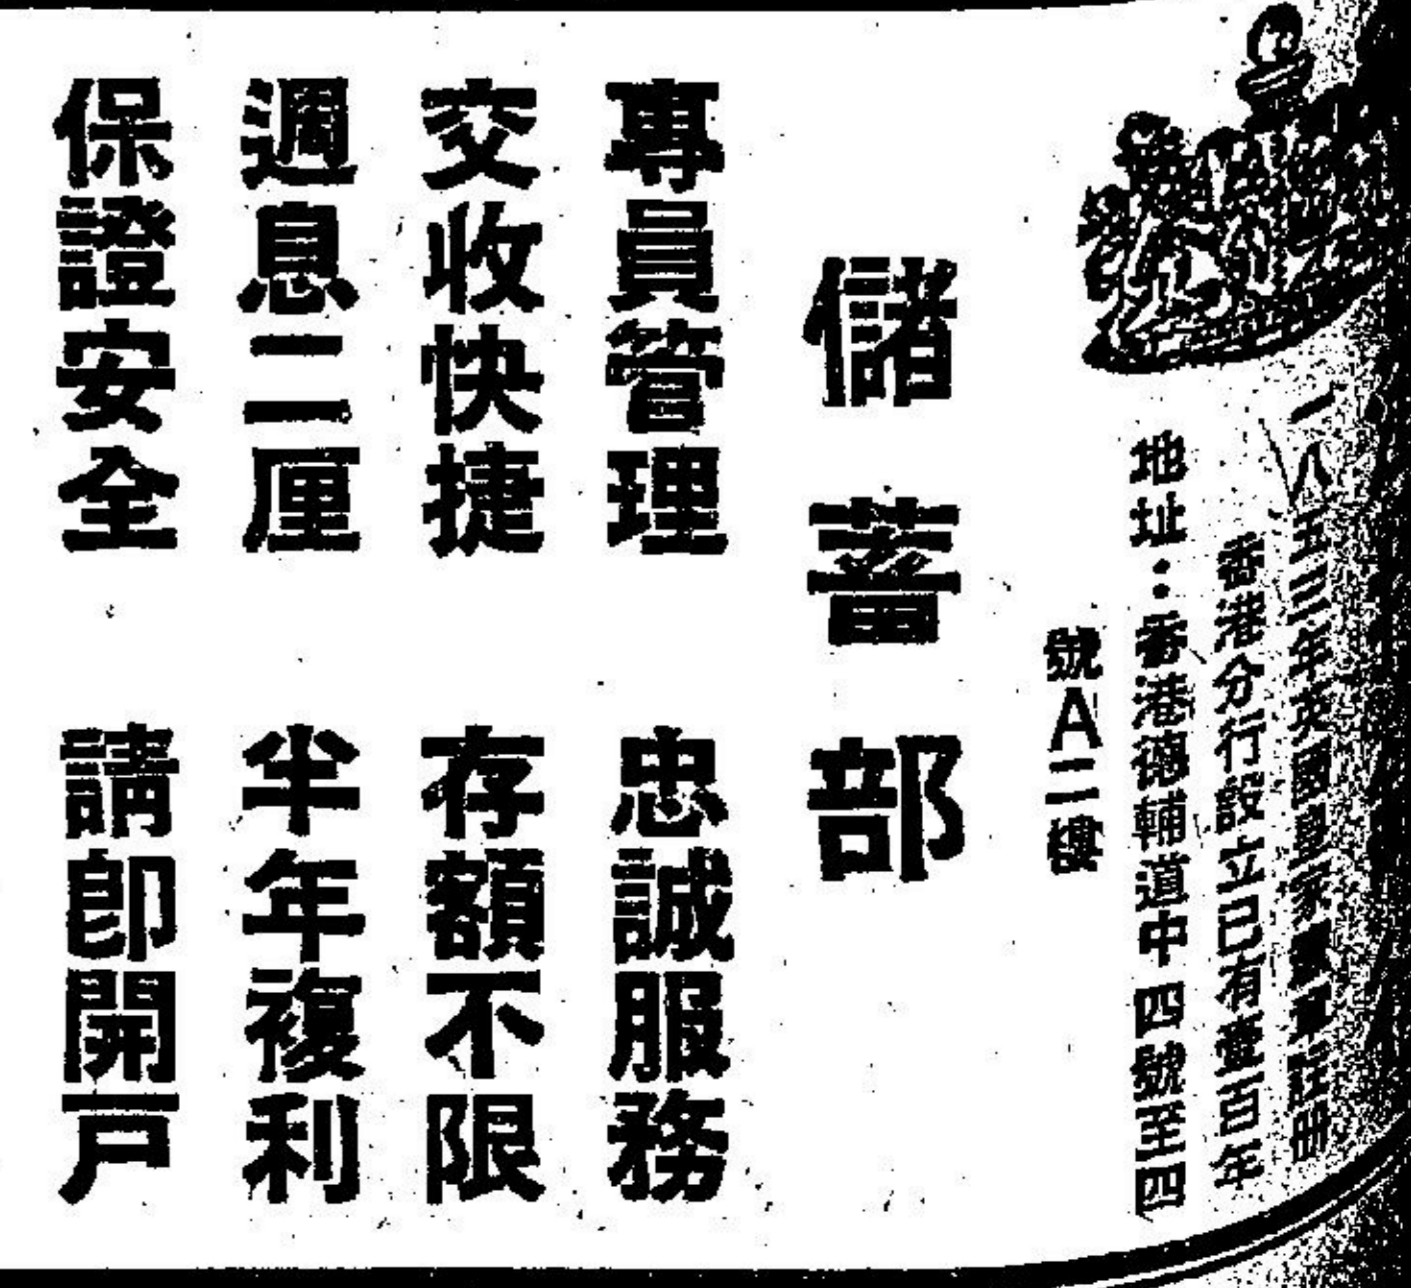 一八五三年英國皇家憲章註册
香港分行設立已有壹百年
地址：香港德輔道中四號至四
號A二樓
儲蓄部
專員管理 忠誠服務
交收快捷 存額不限
週息二厘 半年複利
保證安全 請卽開戶